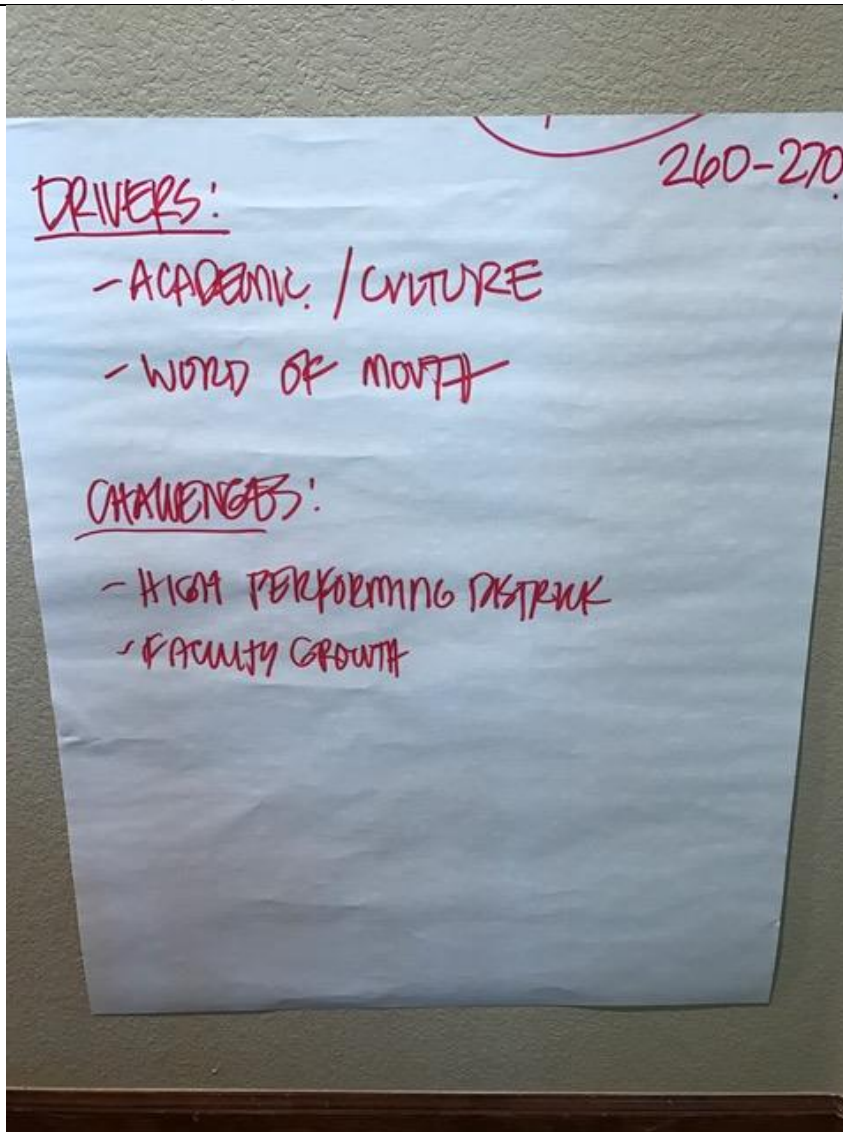 260-270
DRIVERS:
- ACADEMIC / CULTURE
- WORD OF MOUTH
CHALLENGES:
- HIGH PERFORMING DISTRICK
- FACULTY GROWTH